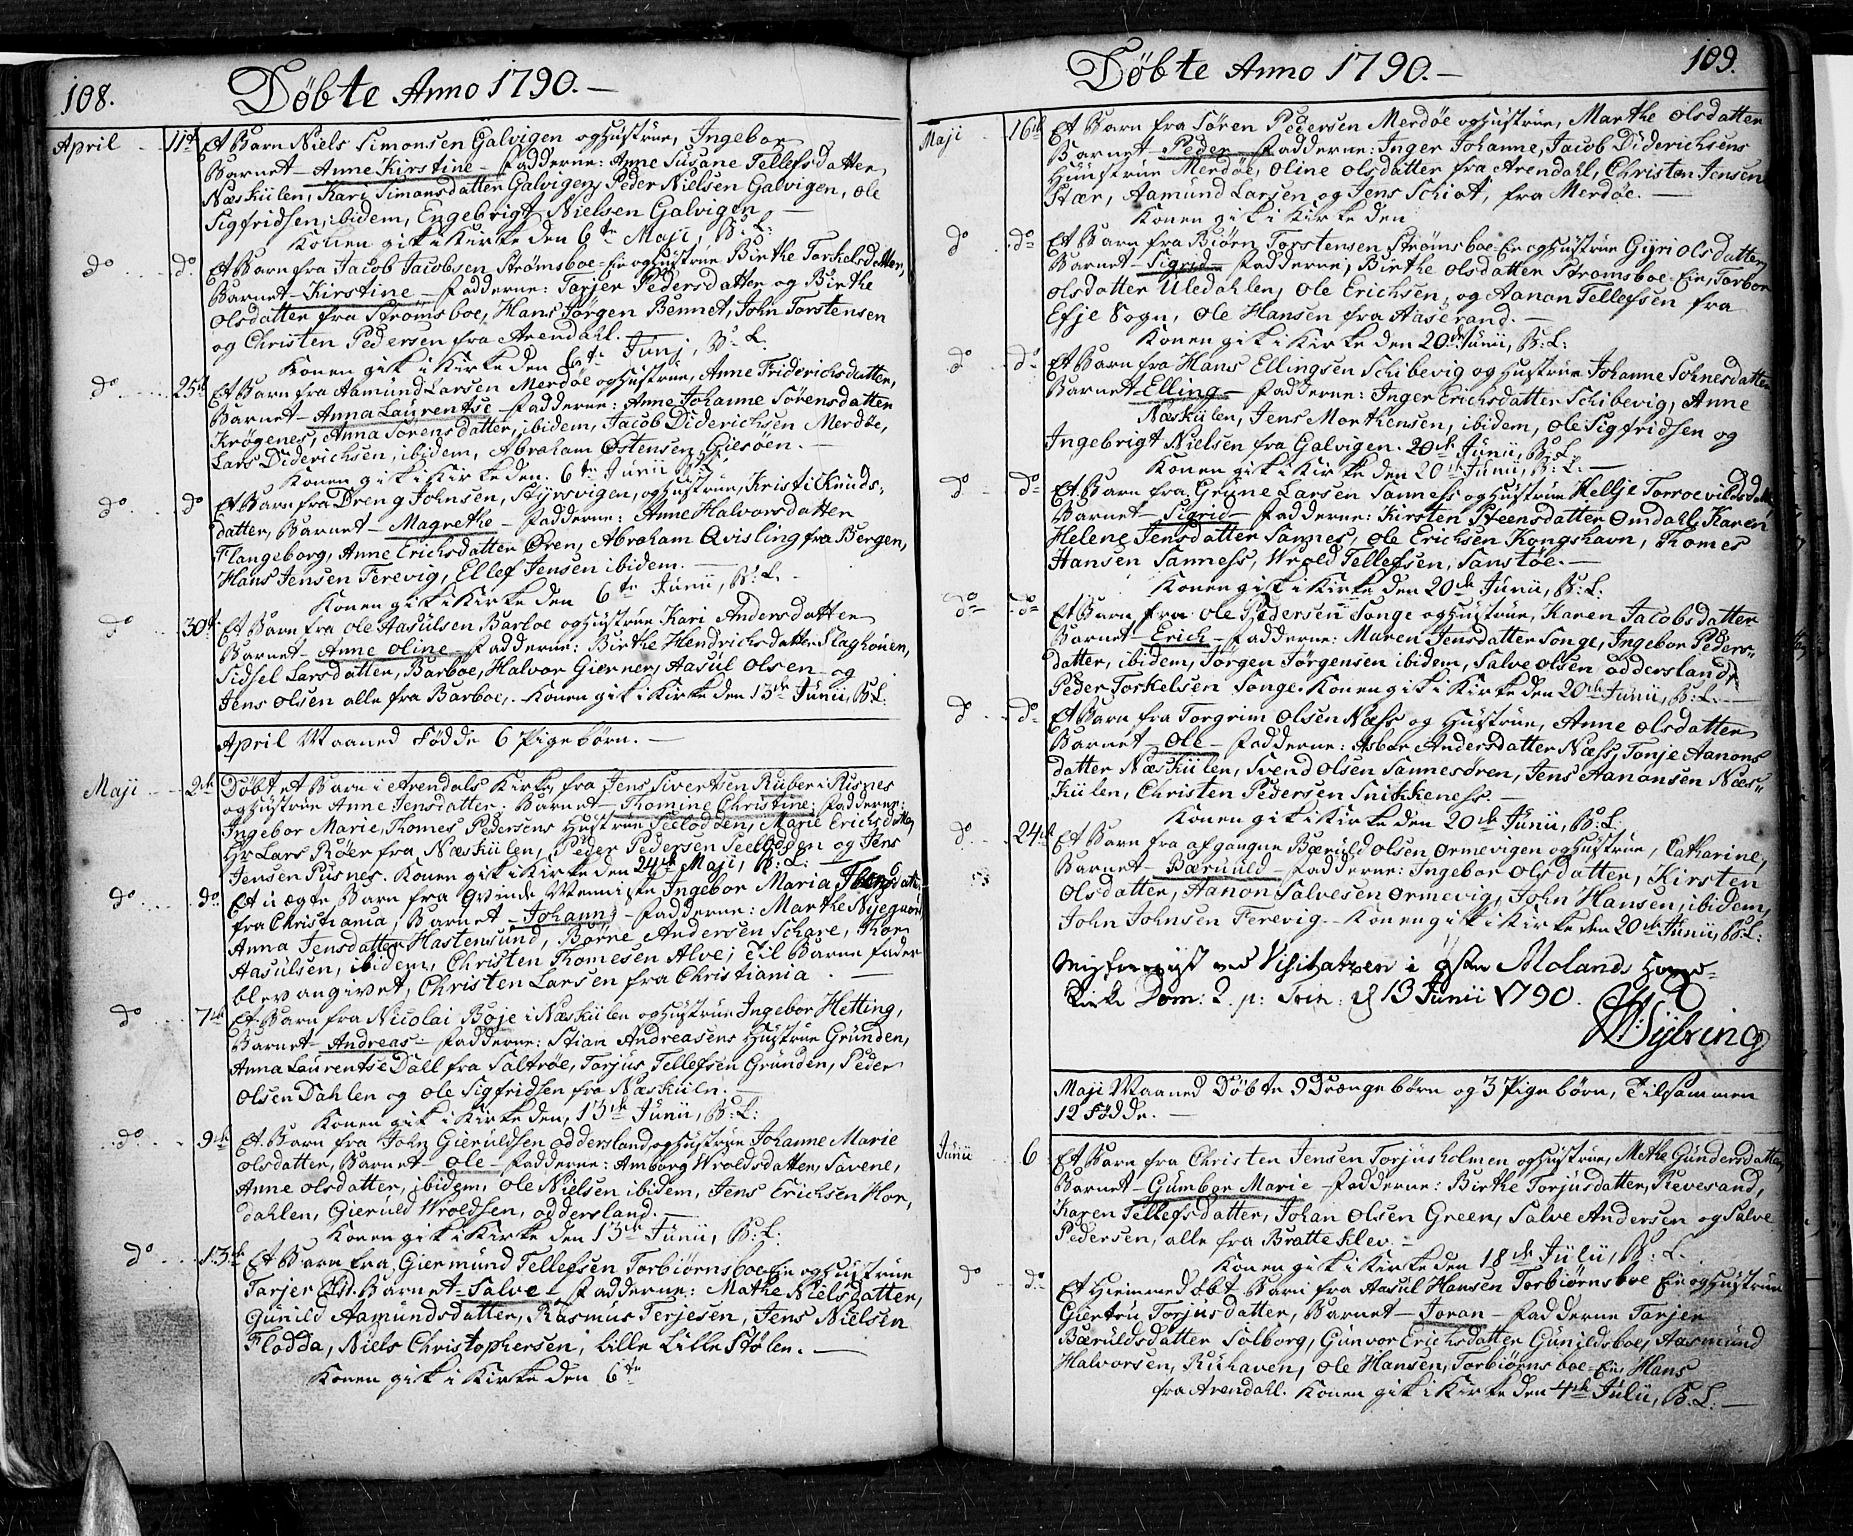 108.
Döbte Anno 1790. —
April 11te Et Barn Niels Simonsen Galvigen og Hustrue, Ingebor
Barnet - Anne Kirstine - Fadderne: Anne Susane Tellefsdatter
Næskiilen, Kari Simansdatter Galvigen, Peder Nielsen Galvigen, Ole
Sigfridsen, ibidem, Engebrigt Nielsen Galvigen —
Konen gik i Kirke den 6te Maji, B: L:
do do Et Barn fra Jacob Jacobsen Strömsboe-Eie og Hustrue Birthe Torkelsdatter,
Barnet - Kirstine - Fadderne: Tarjer Pedersdatter og Birthe
Olsdatter fra Strömsboe, Hans Jörgen Bennet, John Torstensen
og Christen Pedersen fra Arendahl.
Konen gik i Kirke den 6te Junj, B: L.
do 25de Et Barn fra Aamund Larsen Merdöe og Hustrue, Anne Friderichsdatter,
Barnet - Anna Laurentse - Fadderne: Anne Johanne Sörensdatter
Krögenes, Anna Sörensdatter, ibidem, Jacob Diderichsen Merdöe,
Lars Diderichsen, ibidem, Abraham Östensen, Gilsöen. —
Konen gik i Kirke den 6te Junii
do do Et Barn fra Dreng Johnsen, Styrsvigen, og Hustrue, Kristi Knuds:
datter, Barnet - Magrethe - Fadderne: Anne Halvorsdatter
Flangeborg, Anne Erichsdatter Ören, Abraham Qvisling fra Bergen,
Hans Jensen Ferevig, Ellef Jensen ibidem. —
Konen gik i Kirke den 6te Junii, B: L.
do 30te Et Barn fra Ole Aasulsen Barboe og Hustrue Kari Andersdatter
Barnet - Anne Oline - Fadderne: Birthe Hendrichsdatter Flaghöuen,
Sidsel Larsdatter, Barboe, Halvor Gierner, Aasul Olsen og
Jens Olsen alle fra Barboe. - Konen gik i Kirke den 13de Junii, B: L.
April Maaned Födde 6 Pigebörn. —
Maji 2de Döbt et Barn i Arendals Kirke, fra Jens Sivertsen Ruber i Pusnes
og Hustrue Anne Jensdatter. Barnet - Thomine Christine; Fadderne:
Ingebor Marie, Thomes Pedersens Hustrue Seelodden, Marie Erichsdatter
Hr Lars Röer fra Næskiilen, Peder Pedersen Seelodden og Jens
Jensen Pusnes. Konen gik i Kirke den 24de Maji, B: L: —
do do Et uægte Barn fra Qvinde Menniske Ingebor Maria
fra Christiania, Barnet - Johann - Fadderne: Marthe Nijegaard
Anna Jensdatter Hastensund, Börne Andersen Schare, Thor
Aasulsen, ibidem, Christen Thomesen Alve; Til Barne Fader
blev angivet, Christen Larsen fra Christiania. —
do 7de Et Barn fra Nicolai Boje i Næskiilen og Hustrue Ingebor Hetting,
Barnet - Andreas - Fadderne: Stian Andreasens Hustrue Grunden,
Anna Laurentse Dall fra Saltröe, Torjus Tellefsen Grunden, Peder
Olsen Dahlen og Ole Sigfridsen fra Næskiiln.
Konen gik i Kirke den, 13de Junii, B: L:
do 9de Et Barn fra John Gieruldsen Oddersland og Hustrue Johanne Marie
Olsdatter, Barnet - Ole - Fadderne: Amborg Wroldsdatter, Savene,
Anne Olsdatter, ibidem, Ole Nielsen ibidem, Jens Erichsen Hor,
dahlen, Gieruld Wroldsen, Oddersland. —
Konen gik i Kirke den 13de Junii, B: L:
do 13de Et Barn fra, Giermund Tellefsen Torbiörnsboe Eie og Hustrue
Tarjer Barnet - Salve - Fadderne: Mathe Nielsdatter,
Gunild Aamundsdatter, Rasmus Terjesen, Jens Nielsen
Flodda, Niels Christophersen, lille Lille Stölen. —
Konen gik i Kirke den 6te
109.
Döbte Anno 1790. —
Maji 16de Et Barn fra Sören Pedersen Merdöe og Hustrue, Marthe Olsdatter
Barnet - Peder - Fadderne: Inger Johanne, Jacob Diderichsens
Hustrue Merdöe, Oline Olsdatter fra Arendahl, Christen Jensen
Stær, Aamund Larsen og Jens Schiöt, fra Merdöe. —
Konen gik i Kirke den
do do Et Barn fra Biörn Torstensen Strömsboe-Eie og Hustrue Gyri Olsdatter
Barnet - Sigrid - Fadderne; Birthe Olsdatter Strömsboe-Eie, Torbor
Olsdatter Uledahlen, Ole Erichsen, og Aanon Tellefsen fra
Efje Sogn, Ole Hansen fra Aaserand. —
Konen gik i Kirke den 20de Junii, B: L:
do do Et Barn fra Hans Ellingsen Schibevig og Hustrue Johanne Sohnesdatter
Barnet Elling - Fadderne: Inger Erichsdatter Schibevig, Anne
Næskiilen, Jens Morthensen, ibidem, Ole Sigfridsen og
Ingebrigt Nielsen fra Galvigen. 20de Junii, B: L.
Konen gik i Kirke den 20de Junii, B: L: —
do do Et Barn fra Grune Larsen Sanness og Hustrue Hellje Torroevildsdatter
Barnet - Sigrid - Fadderne: Kirsten Steensdatter Omdahl, Karen
Helene Jensdatter Sannes, Ole Erichsen Kongshavn, Thomes
Hansen Sanness, Wrold Tellefsen, Sanstöe. —
Konen gik i Kirke den 20de Junii, B: L:
do do Et Barn fra Ole Pedersen Songe og Hustrue, Karen Jacobsdatter
Barnet - Erich - Fadderne: Maren Jensdatter Songe, Ingebor Peders-
datter, ibidem, Jörgen Jörgensen ibidem, Salve Olsen Oddersland,
Peder Torkelsen Songe. Konen gik i Kirke den 20de Junii, B: L. —
do do Et Barn fra Torgrim Olsen Næss og Hustrue, Anne Olsdatter
Barnet - Ole - Fadderne: Asbor Andersdatter Næss, Tonje Aanons
datter Næskiilen, Svend Olsen Sannesören, Jens Aanonsen Næs-
kiilen, Christen Pedersen Snikkeness. —
Konen gik i Kirke den 20de Junii, B: L.
do 24de Et Barn fra afgangne Bæruld Olsen Ormevigen og Hustrue, Catharine,
Barnet - Bæruuld - Fadderne: Ingebor Olsdatter, Kirsten
Olsdatter, Aanon Salvesen Ormevig, John Hansen, ibidem,
John Johnsen Ferevig. - Konen gik i Kirke den 20de Junii, B: L:
ved Visitatzen i Östre Molands Hoved-
Kirke Dom: 2. p: Trin: d 13 Junii 1790.
Maji Maaned Döbte 9 Drænge börn og 3 Pige börn, Tilsammen
12 Födde. —
Junii 6 Et Barn fra Christen Jensen Torjusholmen og Hustrue, Methe Gundersdatter,
Barnet - Gumbor Marie - Fadderne: Birthe Torjusdatter, Revesand,
Karen Tellefsdatter, Johan Olsen Green, Salve Andersen og Salve
Pedersen, alle fra Bratteklev. —
Konen gik i Kirke den 18de Julii, B: L.
do do Et Hiemmedöbt Barn fra Aasul Hansen Torbiörnsboe Eie og Hustrue
Giertru Torjusdatter, Barnet - Joran - Fadderne Tarjer
Bæruldsdatter Solborg, Gunvor Erichsdatter Gunildsboe, Aasmund
Halvorsen, Riishaven, Ole Hansen, Torbiörnsboe-Eie, Hans
fra Arendahl. Konen gik i Kirke den 4de Julii, B. L: —